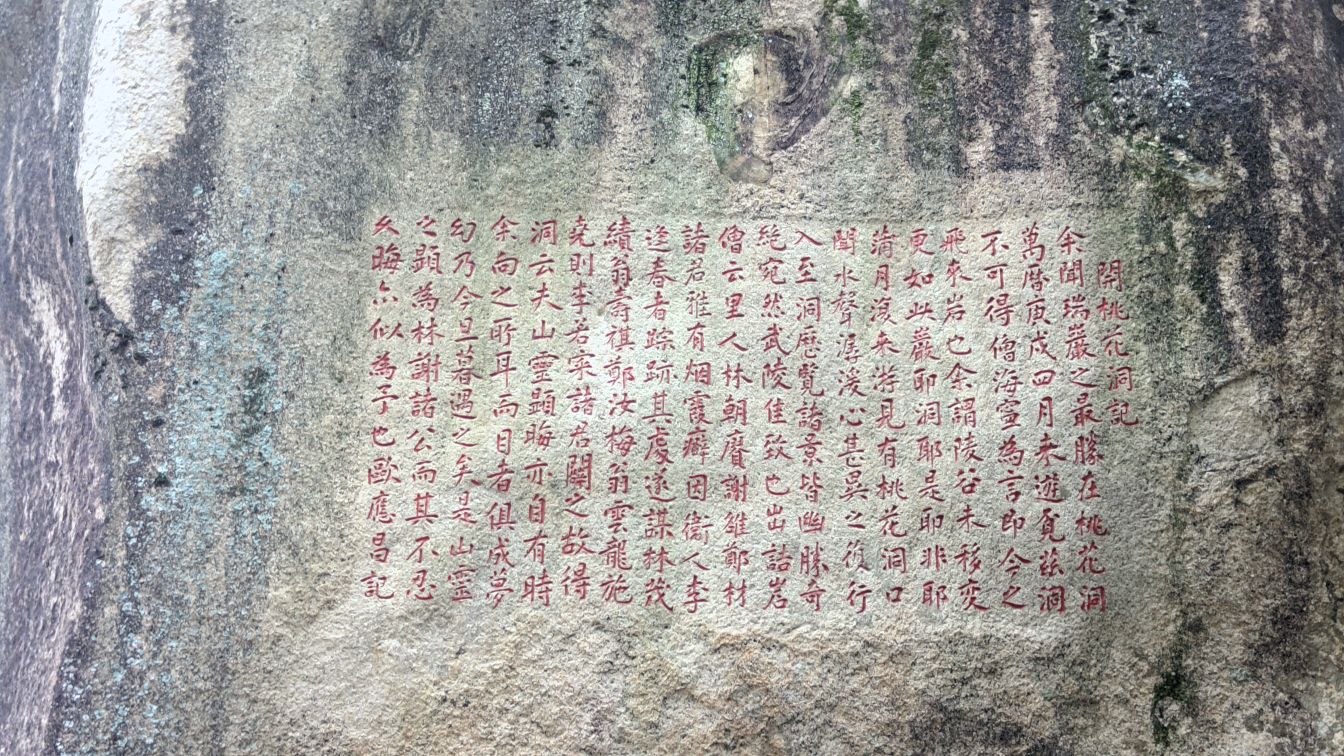 開桃花洞記
余聞瑞巖之最勝在桃花洞
萬曆庚戌四月来遊覓茲洞
不可得僧海宣為言即今之
飛來岩也余謂陵谷未移変
更如此巖耶洞耶是耶非耶
蒲月復来游見有桃花洞口
聞水聲潺湲心甚異之復行
入至洞歷覽諸景皆幽勝奇
絕宛然武陵佳致也出詰岩
僧云里人林朝賡謝雒鄭材
諸君雅有烟霞癖因衞人李
逢春者踪跡其處遂謀林茂
績翁壽祺鄭汝梅翁雲龍施
堯則李君寀諸君闢之故得
洞云夫山靈顕晦亦自有時
余向之所耳而目者俱成夢
幻乃今旦暮遇之矣是山靈
之顕為林謝諸公而其不忍
久晦亦似為予也歐應昌記